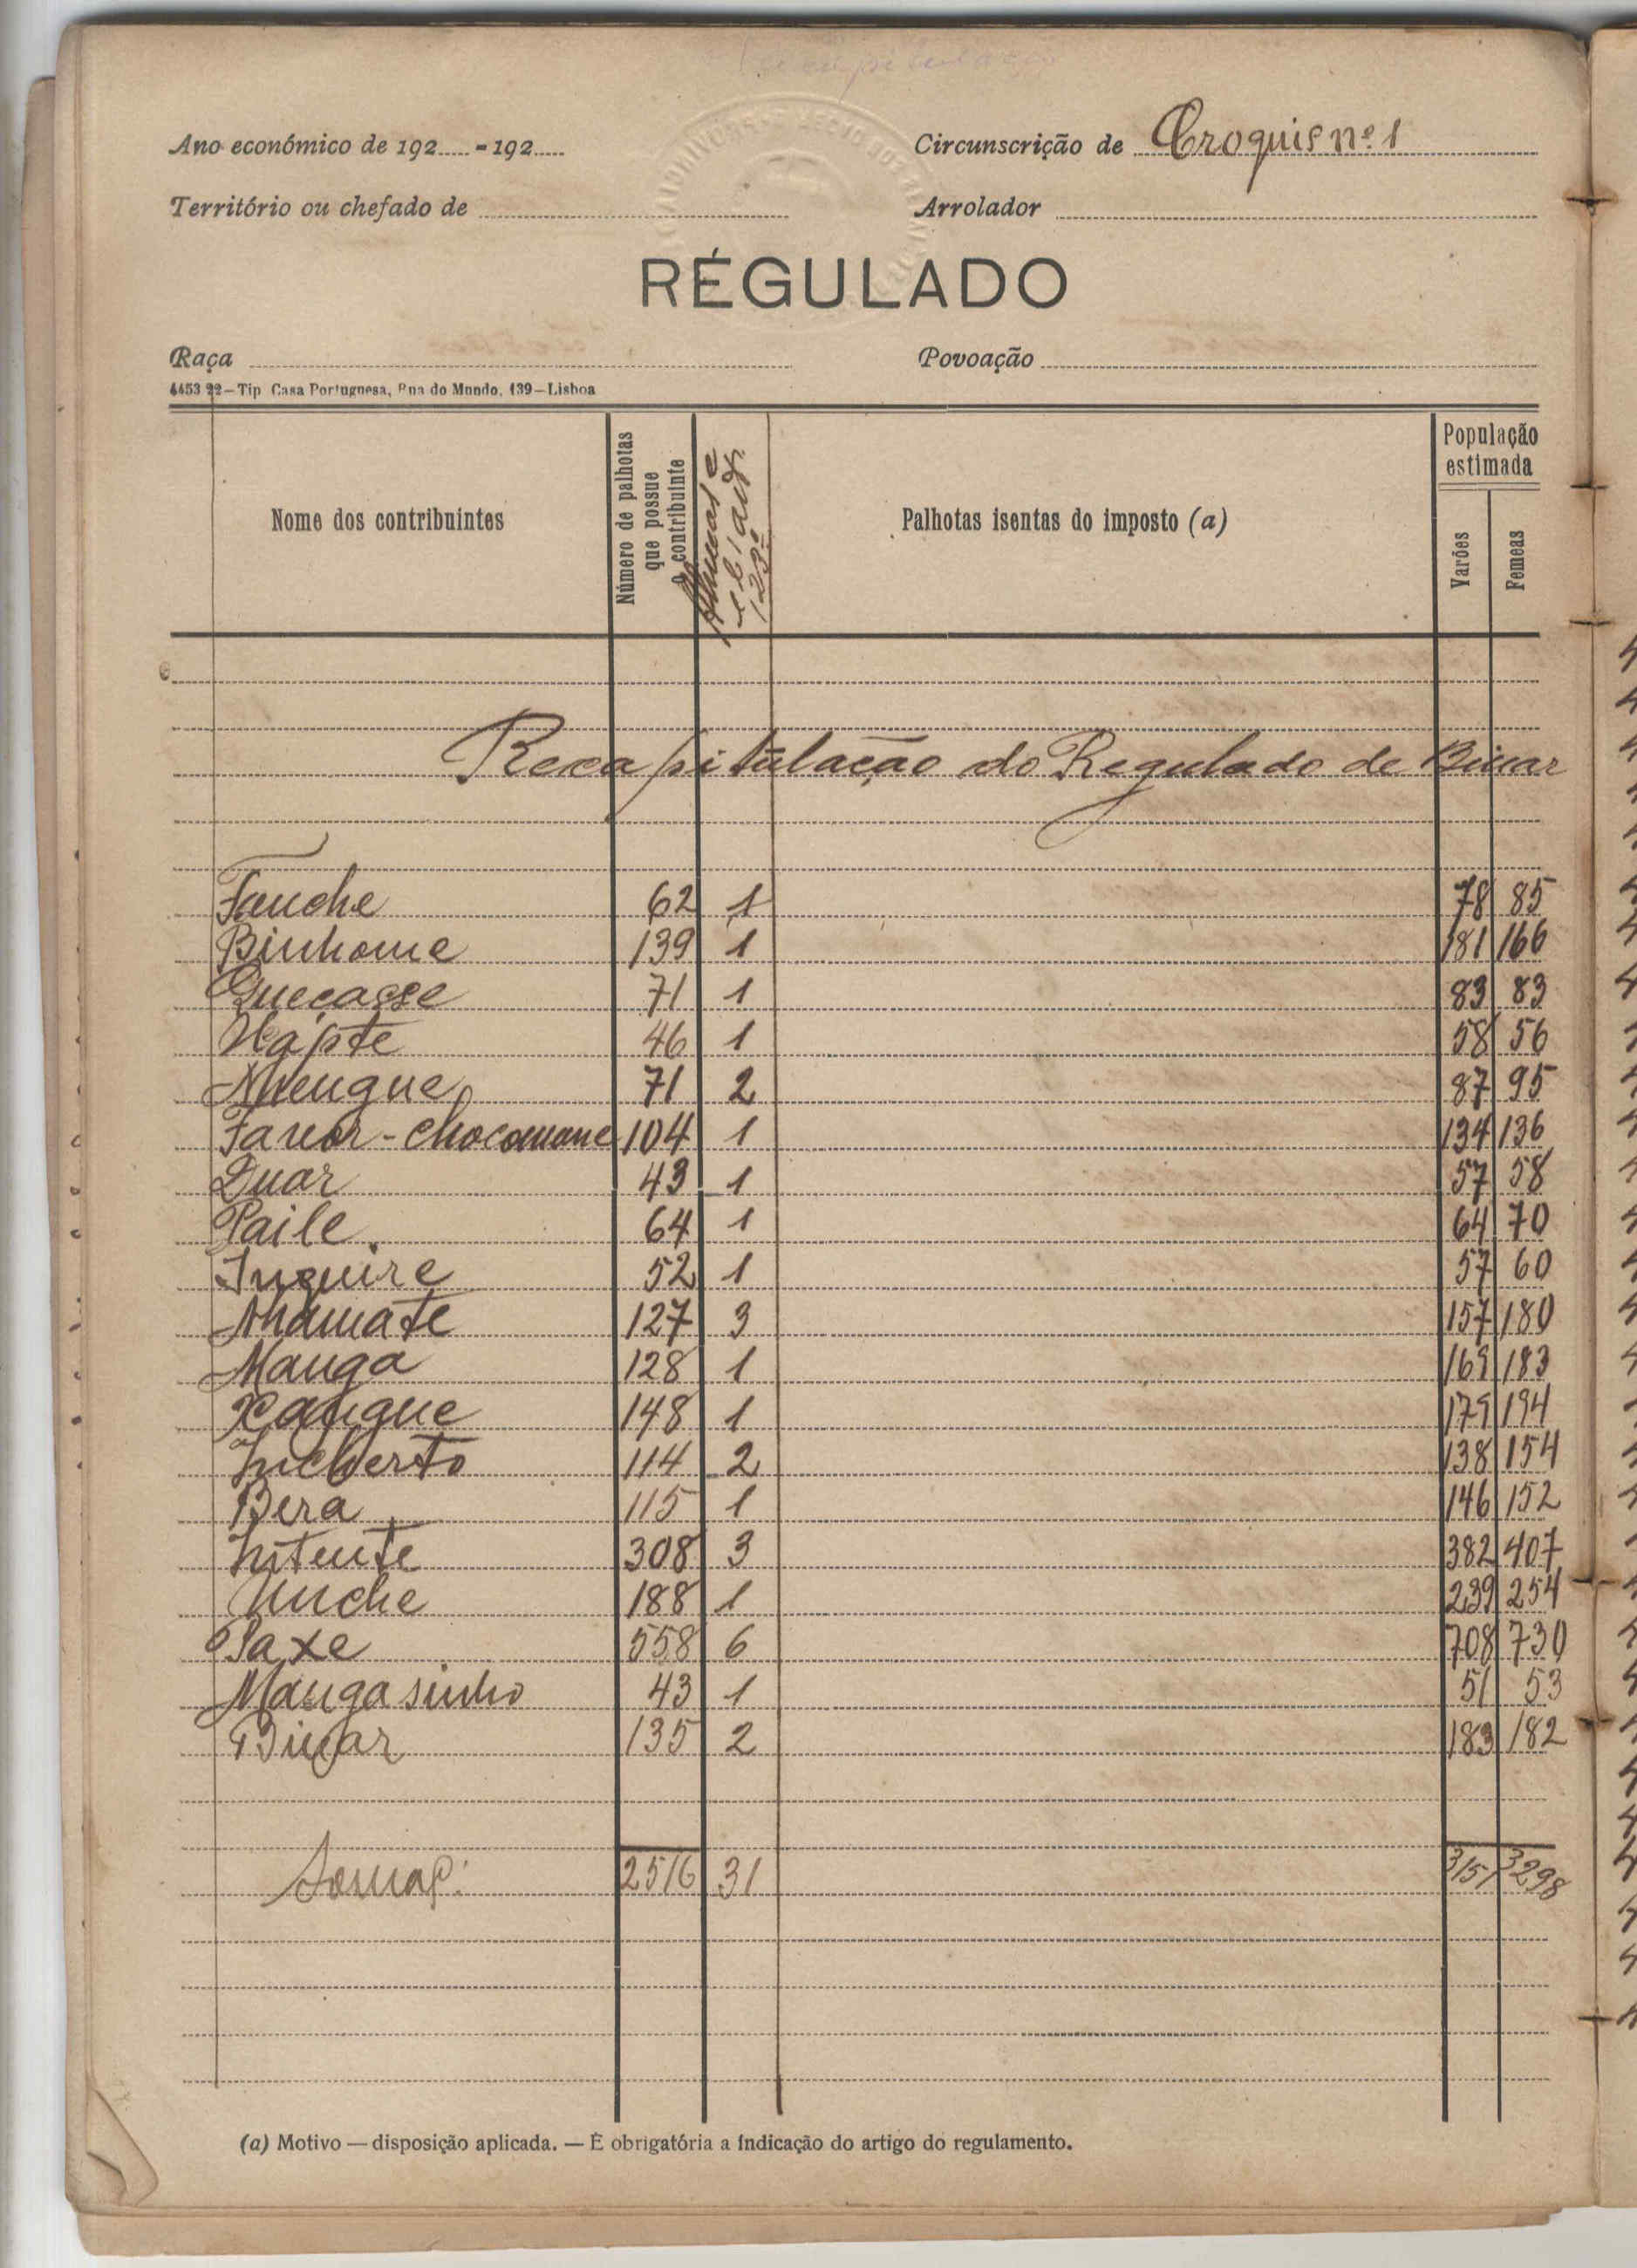 Ano económico de 192..... - 192.....
Circunscrição de Croquis nº 1
Território ou chefado de
Arrolador
RÉGULADO
Raça
Povoação
4453 22—Tip Casa Portuguesa, Rua do Mundo, 139—Lisboa
Nome dos contribuintes
Número de palhotas que possue o contribuinte
Palhotas isentas do imposto (a)
População estimada
Varões
Femeas
Recapitulação do Regulado de Binar
Fanche 62 1 78 85
Binhome 139 1 181 166
Quecasse 71 1 83 83
46 1 58 56
Nhengue 71 2 87 95
104 1 134 136
Quar 43 1 57 58
Paile 64 1 64 70
Inquire 52 1 57 60
Nhamate 127 3 157 180
Manga 128 1 169 183
Xangue 148 1 179 194
Incherto 114 2 138 154
Bera 115 1 146 152
Intente 308 3 382 407
Unche 188 1 239 254
Paxe 558 6 708 730
Mangasinho 43 1 51 53
Binar 135 2 183 182
Somas: 2516 31 3151 3298
(a) Motivo — disposição aplicada. — É obrigatória a indicação do artigo do regulamento.